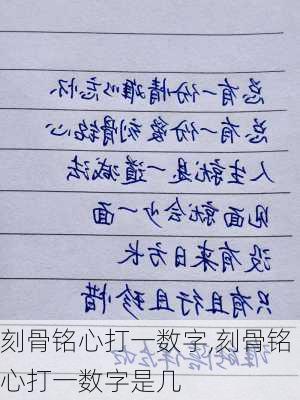 总有一份情难以忘怀
总有一份爱刻骨铭心
人生就是一道减法
见面就会少一面
没有来日方长
只有且行且珍惜
刻骨铭心打一数字,刻骨铭
心打一数字是几